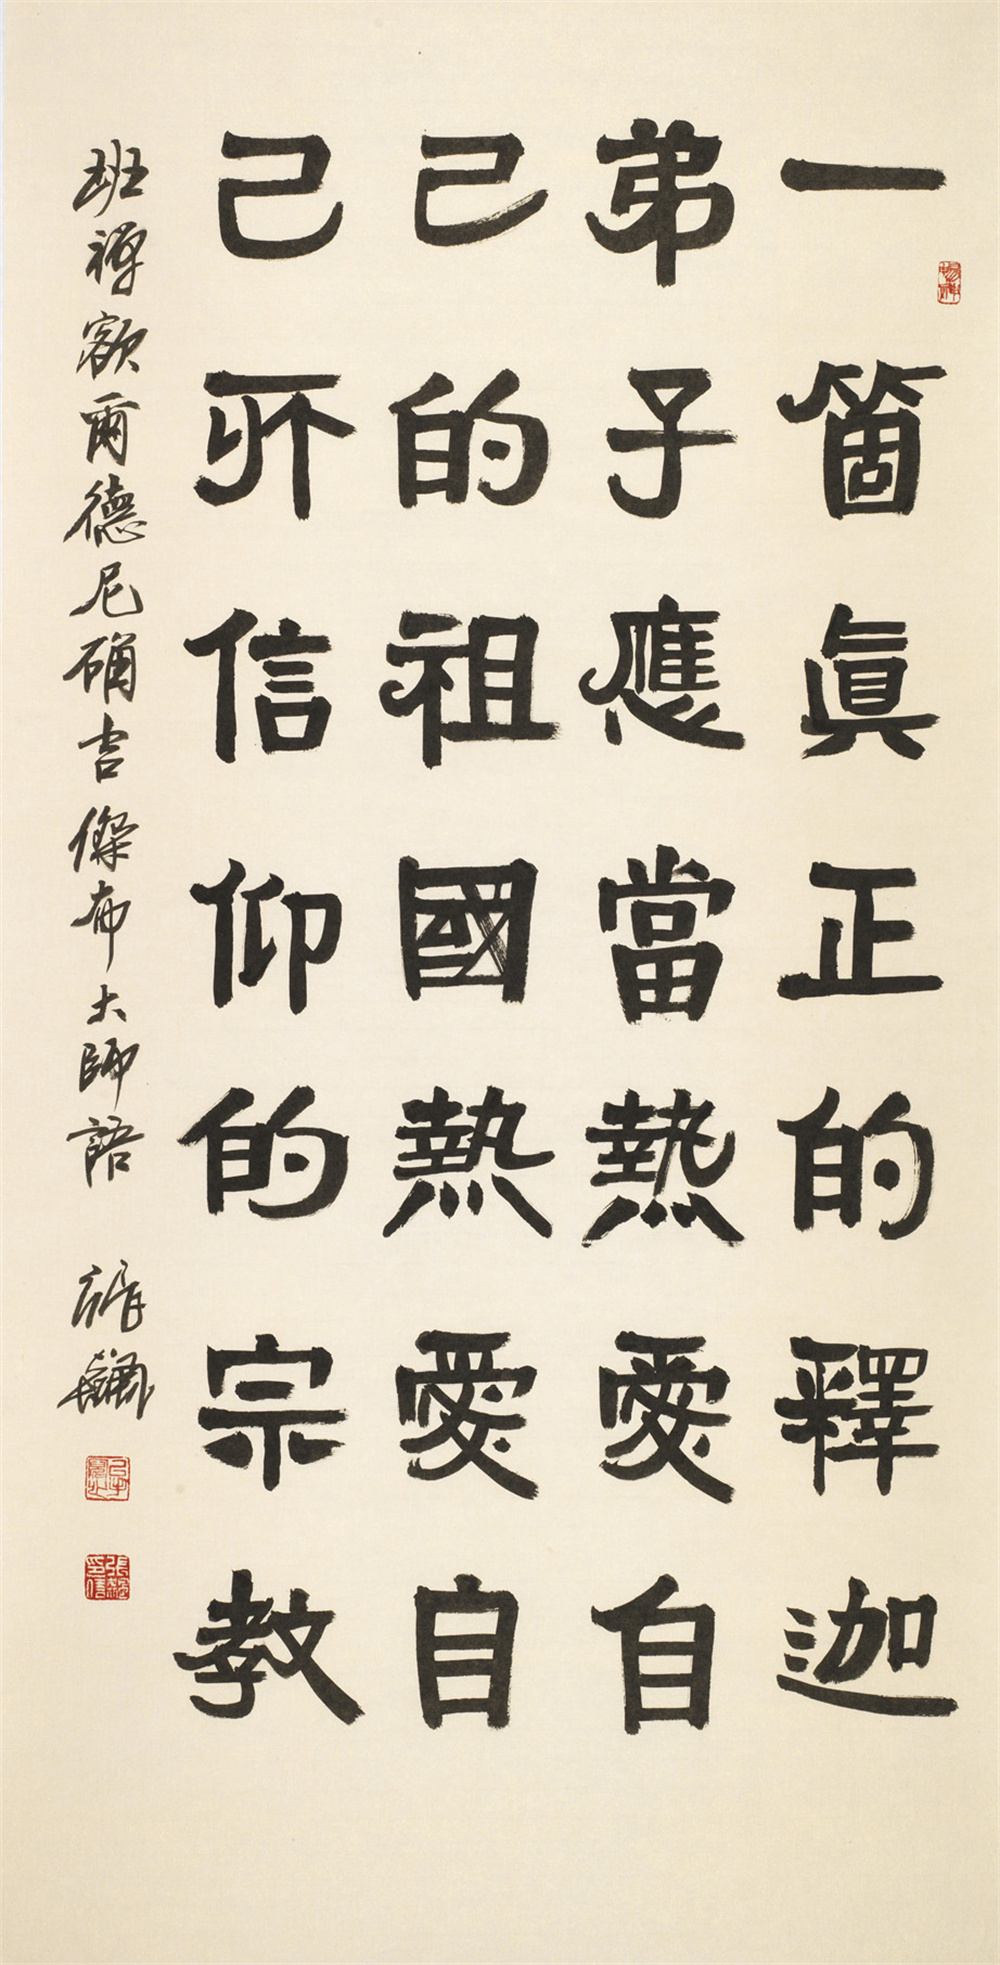 一箇眞正的釋迦
弟子應當熱愛自
己的祖國熱愛自
己所信仰的宗教
班禪額爾德尼確吉傑布大師語